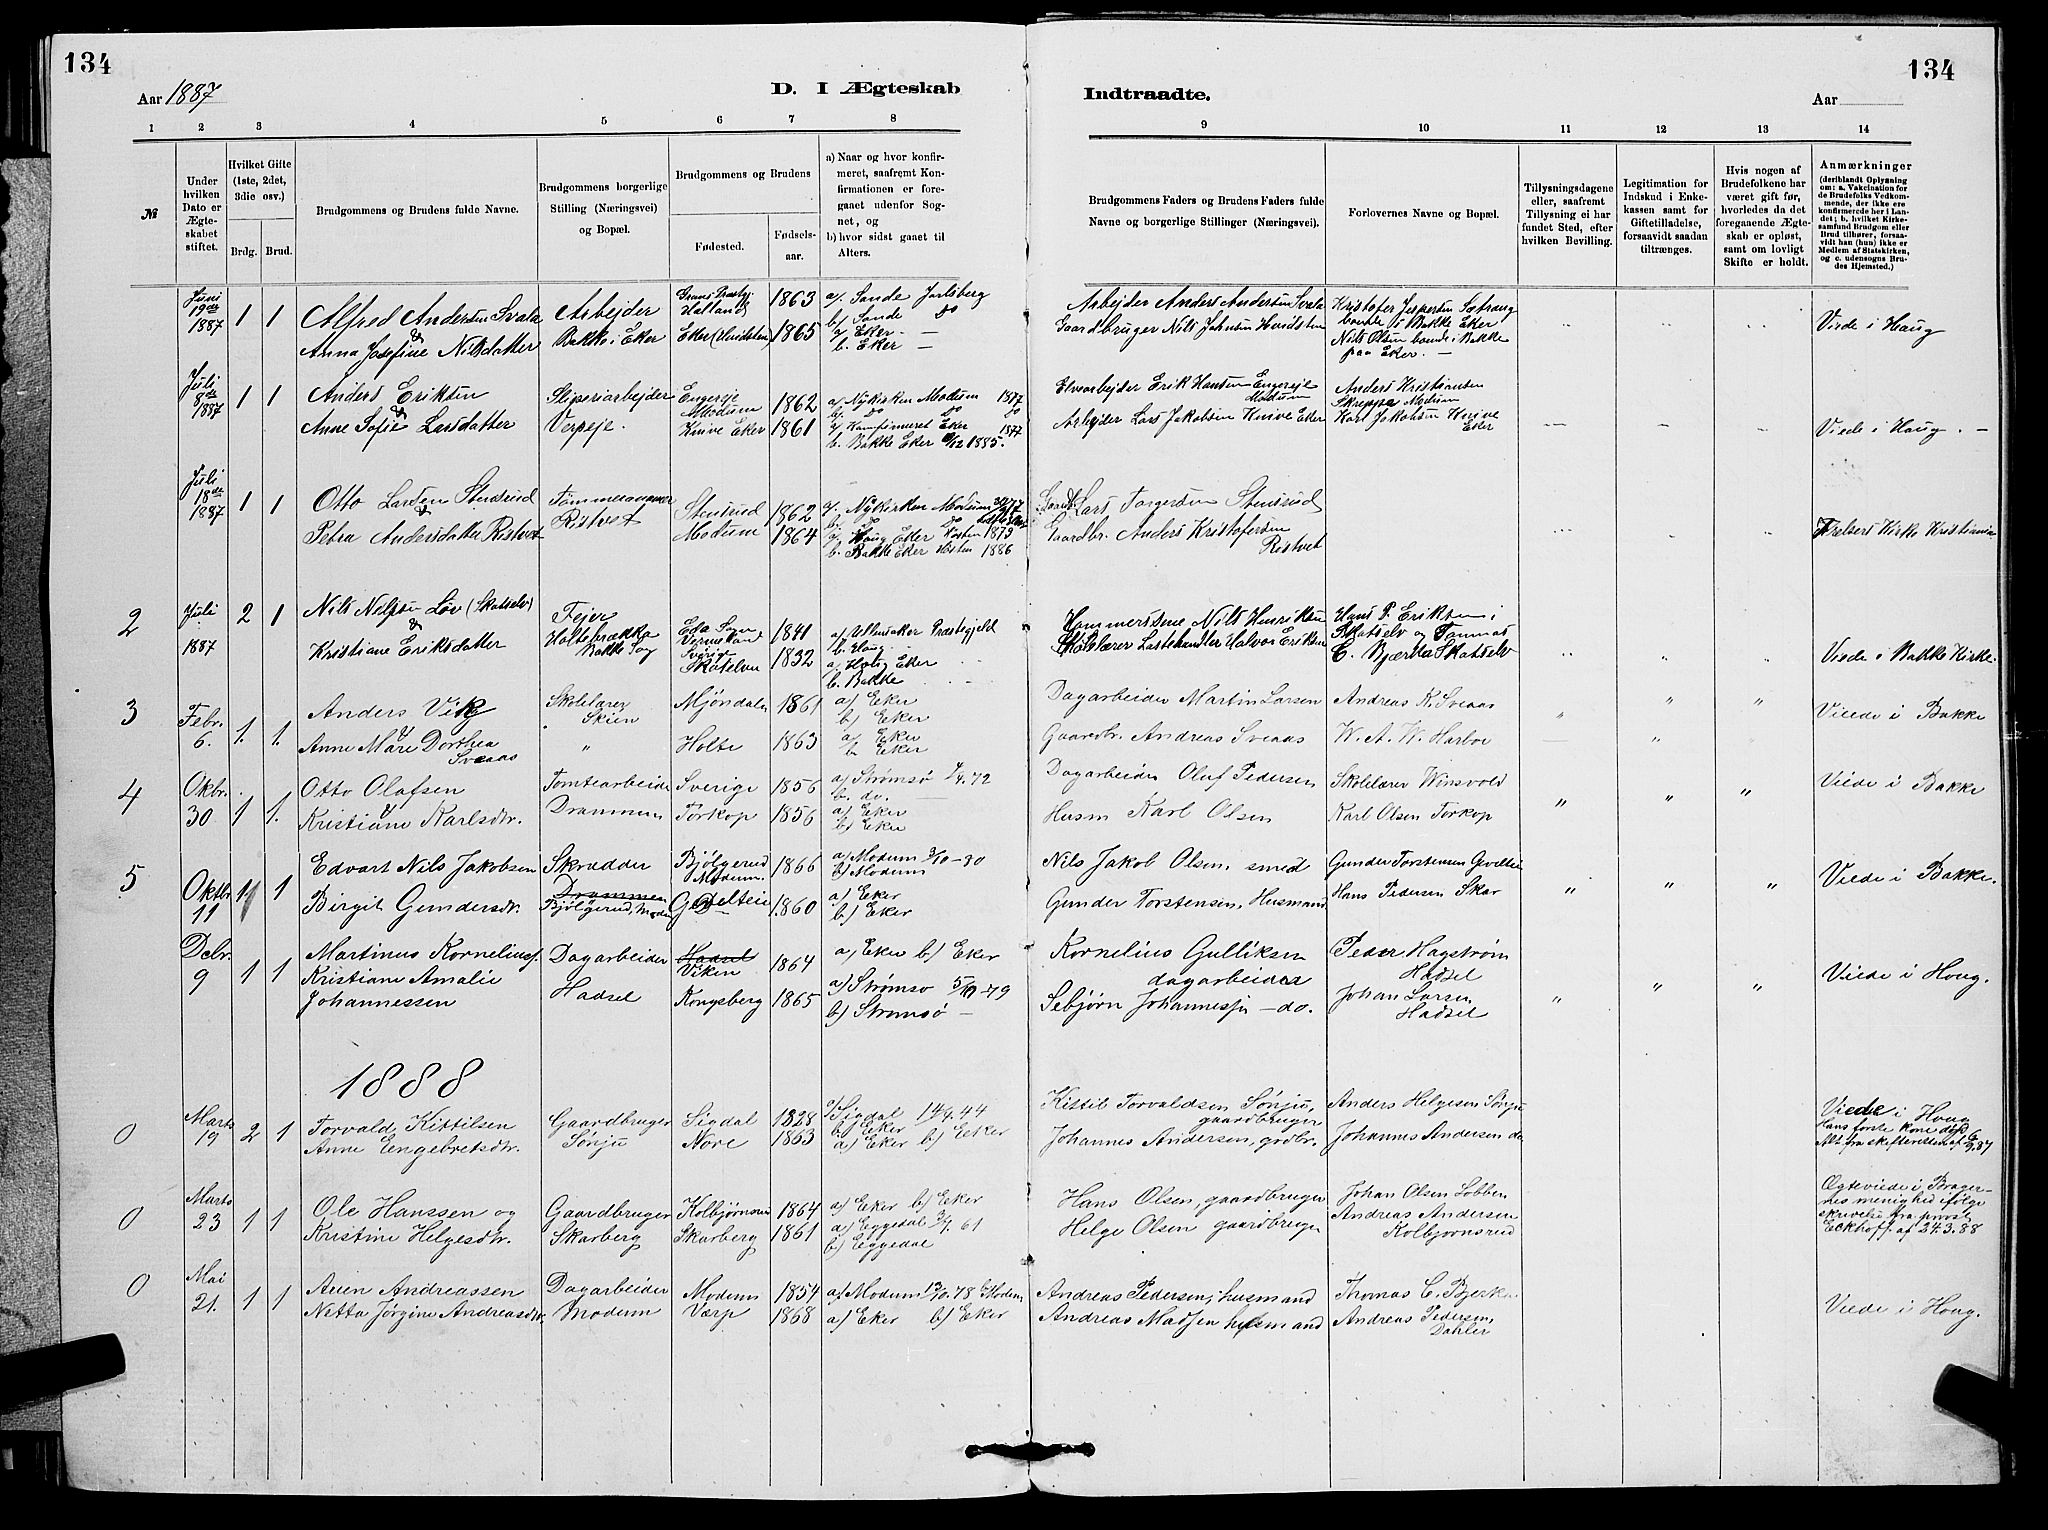 134
134
Aar 1887
D. I Ægteskab
Indtraadte.
Aar
1 2 3 4 5 6 7 8
9 10 11 12 13 14
№
Under hvilken Dato er Ægteskabet stiftet.
Hvilket Gifte (1ste, 2det, 3die osv.)
Brdg. Brud.
Brudgommens og Brudens fulde Navne.
Brudgommens borgerlige Stilling (Næringsvei) og Bopæl.
Brudgommens og Brudens
Fødested.
Fødselsaar.
a) Naar og hvor konfirmeret, saafremt Konfirmationen er foregaaet udenfor Sognet, og
b) hvor sidst gaaet til Alters.
Brudgommens Faders og Brudens Faders fulde Navne og borgerlige Stillinger (Næringsvei).
Forlovernes Navne og Bopæl.
Tillysningsdagene eller, saafremt Tillysning ei har fundet Sted, efter hvilken Bevilling.
Legitimation for Indskud i Enkekassen samt for Giftetilladelse, forsaavidt saadan tiltrænges.
Hvis nogen af Brudefolkene har været gift før, hvorledes da det foregaaende Ægteskab er opløst, samt om lovligt Skifte er holdt.
Anmærkninger
(deriblandt Oplysning om: a. Vakcination for de Brudefolks Vedkommende, der ikke ere konfirmerede her i Landet; b. hvilket Kirkesamfund Brudgom eller Brud tilhører, forsaavidt han (hun) ikke er Medlem af Statskirken, og c. udensogns Brudes Hjemsted.)
Juni 19de 1887 1 1
Alfred Andersen Svala & Anna Josefine Nilsdatter
Arbejder Bakke i Eker
Hatland 1863
Eker (Hvidsten) 1865
a/. Sande Jarlsberg
b/ Sande do
a/ Eker. —
b. Eker —
Arbejder Anders Andersen Svala
Gaardbruger Nils Johnsen Hvidsten
Kristofer Jespersen
boende i Bakke Eker
Nils Olsen boende i Bakke
paa Eker. —
Viede i Haug
Juli 8de 1887 1 1
Anders Eriksen & Anne Sofie Larsdatter
Sliperiarbejder
Verpeje.
Engereje Modum 1862
Knive Eker 1861
a/ Nykirken Modum 1877
b/. do do do
a/ Konfirmeret Eker 1877
b. Bakke Eker 1885.
Elvearbejder Erik Hansen Engereje Modum
Arbejder Lars Jakobsen Knive Eker
Anders Kristiansen
Skreppa Modum
Karl Jakobsen Knive Eker
Viede i Haug. —
Juli 18de 1887 1 1
Otto Larsen Stensrud & Petra Andersdatter Ristvet
Tømmermand
Ristvet
Stensrud Modum 1862
1864
a/. Nykirken Modum
b/. do do
a/ Haug Eker Høsten 1879
b. Bakke Eker Høsten 1886
Lars Torgersen Stensrud
Gaardbr. Anders Kristofersen Ristvet
Frelsers Kirke Kristiania
2 Juli 1887 2 1
Nils Nilsen Löv (Skotselv) & Kristiane Eriksdatter
Fejer
Holtebrækka
Bakke Sog
Eda Sogn Vermeland Sverige 1841
Skotselven 1832
a/ Ullensaker Præstegjeld
b. Haug
a. Haug Eker
b. Bakke
Hammersmed Nils Henriksen
Lastehandler Halvor Eriksen
Hans P. Eriksen i
Skotselv og Tommas
C. Bjærke Skotselv
Viede i Bakke Kirke.
3 Febr. 6. 1. 1.
Anders Vik & Anne Mare Dorthea Sveaas
Skolelærer Skien
"
Mjøndalen 1861
Holte 1863
a) Eker
b) Eker
a) Eker
b. Eker
Dagarbeider Martin Larsen
Gaardbr. Andreas Sveaas
Andreas K. Sveaas
W. A. W. Harboe
Viede i Bakke
4 Okbr. 30 1 1.
Otto Olafsen & Kristiane Karlsdtr.
Tomtearbeider
Drammen
Sverige 1856
Torkop 1856
a) Strømsø 1/4. 72
b. do.
a) Eker
b) Eker
Dagarbeider Oluf Pedersen
Husm Karl Olsen
Skolelærer Winsvold
Karl Olsen Torkop
Viede i Bakke
5 Oktbr. 11 1 1
Edvart Nils Jakobsen
Birgit Gundersdr.
Skrædder
Drammen
Bjølgerud, Modum
Bjølgerud Modum. 1866
Gevelteie 1860
a) Modum 3/10–30
b) Modum
a) Eker
b) Eker
Nils Jakob Olsen, smed
Gunder Torstensen, Husmand
Gunder Torstensen Gevelteie
Hans Pedersen Skar
Viede i Bakke.
Debr. 9 1 1
Martinus Korneliusf.
Kristiane Amalie Johannessen
Dagarbeider
Hadsel
Hadsel
Viken 1864
Kongsberg 1865
a) Eker b) Eker
a) Strømsø 5/10–79
b) Strømsø –
Kornelius Gulliksen dagarbeider
Sebjørn Johannesfn – do.
Peder Hagstrøm Hadsel
Johan Larsen Hadsel
Viede i Houg.
1888
0 Marts 19 2 1
Torvald Kittilsen
Anne Engebretsdtr.
Gaardbruger
Sønju
Sigdal 1828
Nore 1863
a/ Sigdal 14/9. 44
b) Eker
a) Eker b) Eker
Kittil Torvaldsen Sønju, gaardbruger
Johannes Andersen, grdbr.
Anders Helgesen Sønju
Johannes Andersen do
Viede i Houg
Hans første kone død
Att fra skifteretten af 6/9. 87
0 Marts 23 1 1
Ole Hanssen og
Kristine Helgesdtr.
Gaardbruger
Skarberg
Kolbjørnsrud 1864
Skarberg 1861
a) Eker b) Eker
a) Eggedal 61
b) Eggedal
Hans Olsen, gaardbruger
Helge Olsen gaardbruger
Johan Olsen Lobben
Andreas Andersen
Kolbjørnsrud
Ægteviede i Bragernes menighed ifølge
skrivelse fra provst
Eckhoff af 24.3.88
0 Mai 21. 1 1
Aven Andreassen
Netta Jørgine Andreasdtr.
Dagarbeider
Modum
Modum 1854
Værp 1868
a) Modum 13/10. 78 b) Modum
a) Eker b) Eker
Andreas Pedersen, husmand
Andreas Madsen husmand
Thomas C. Bjerke
Andreas Pedersen, Dahler
Viede i Houg.